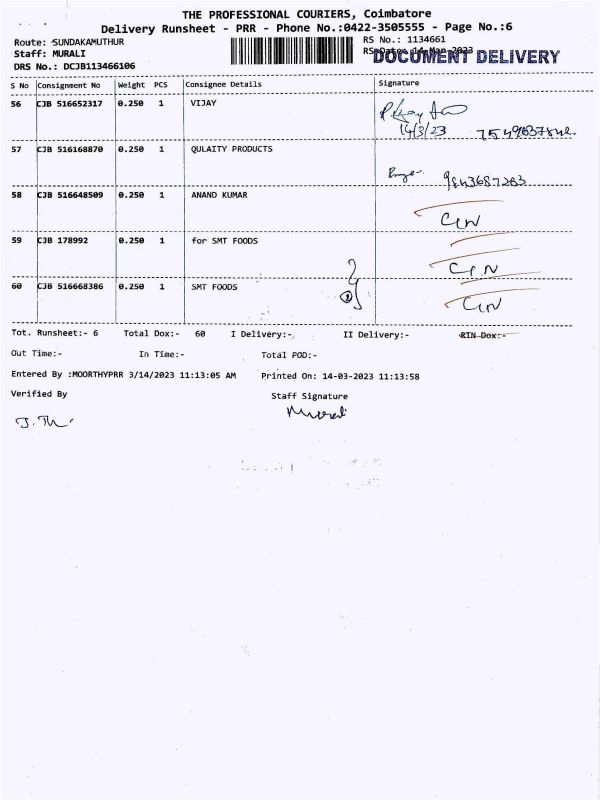 THE PROFESSIONAL COURIERS, Coimbatore
Delivery Runsheet - PRR - Phone No.:0422-3505555 - Page No.:6
Route: SUNDAKAMUTHUR
RS No.: 1134661
Staff: MURALI
RS Date: 14-Mar-2023
DOCUMENT DELIVERY
DRS No.: DCJB113466106
S No Consignment No Weight PCS Consignee Details Signature
56 CJB 516652317 0.250 1 VIJAY
14/3/23
57 CJB 516168870 0.250 1 QULAITY PRODUCTS
9843687283
58 CJB 516648509 0.250 1 ANAND KUMAR
59 CJB 178992 0.250 1 for SMT FOODS
60 CJB 516668386 0.250 1 SMT FOODS
Tot. Runsheet:- 6 Total Dox:- 60 I Delivery:- II Delivery:- RTN Dox:-
Out Time:- In Time:- Total POD:-
Entered By :MOORTHYPRR 3/14/2023 11:13:05 AM Printed On: 14-03-2023 11:13:58
Verified By Staff Signature
Murali